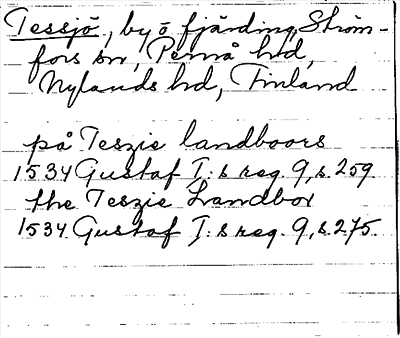 Tessjö, by ö fjärding, Ström-
fors sn, Pernå hd,
Nylands hd, Finland
på Teszie landboars
1534 Gustaf I:s reg. 9, s. 259
the Teszie Landbor
1534 Gustaf I:s reg. 9, s. 275.